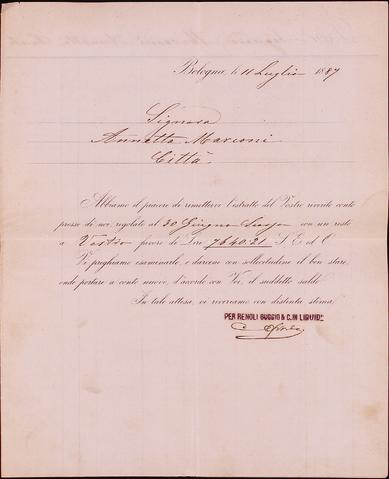 Bologna, li 11 Luglio 1887
Signora
Annetta Marconi
Città
Abbiamo il piacere di rimettervi l'estratto del Vostro riverito conto
presso di noi, regolato al 30 Giugno Scorso con un resto
a Vostro favore di Lire 7640:21 S. E. ed O.
Vi preghiamo esaminarlo, e darcene con sollecitudine il ben stare,
onde portare a conto nuovo, d'accordo con Voi, il suddetto saldo.
In tale attesa, vi riveriamo con distinta stima
PER RENOLI BUGGIO & C. IN LIQUIDE